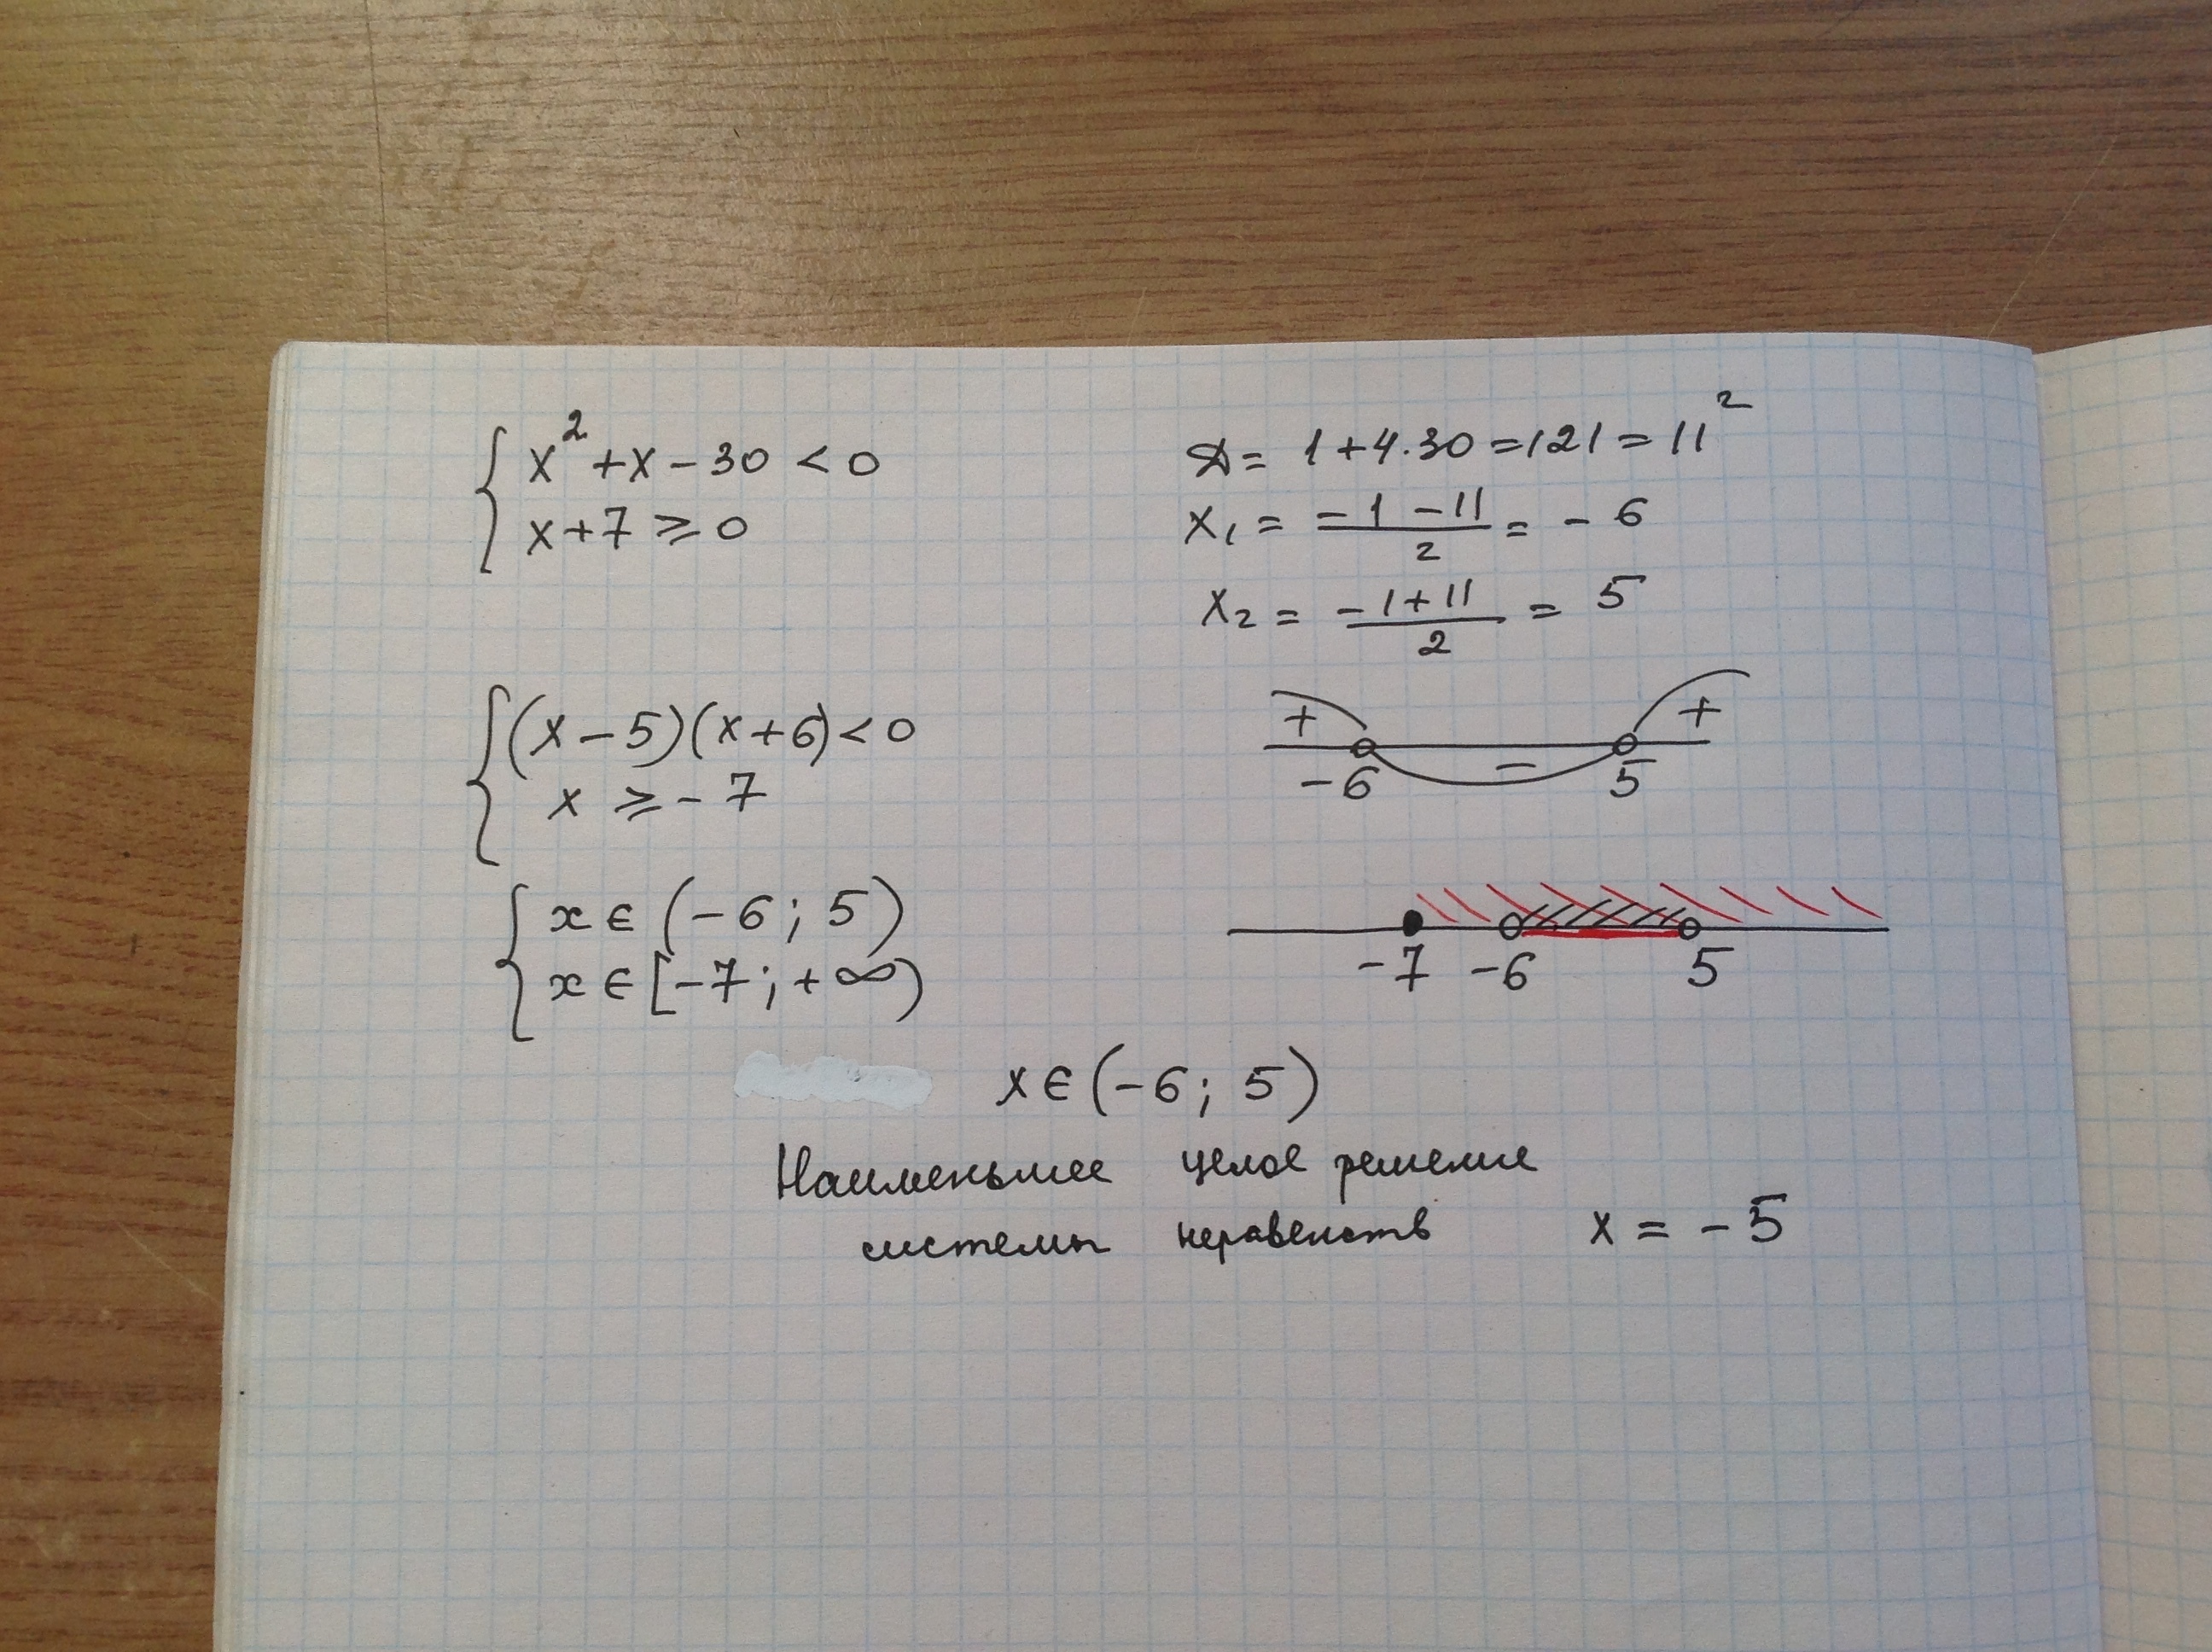 x² + x - 30 < 0
x + 7 ⩾ 0
D = 1 + 4·30 = 121 = 11²
x₁ = (-1 - 11)/2 = -6
x₂ = (-1 + 11)/2 = 5
(x - 5)(x + 6) < 0
x ⩾ -7
+ - +
-6 5
x ∈ (-6; 5)
x ∈ [-7; +∞)
-7 -6 5
x ∈ (-6; 5)
Наименьшее целое решение
системы неравенств x = -5